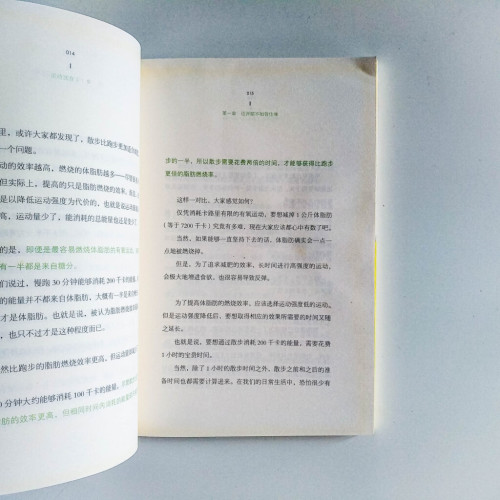 014
里，或许大家都发现了，散步比跑步更
一个问题。
动的效率越高，燃烧的体脂肪越多——
但实际上，提高的只是脂肪的燃烧效率，
是以降低运动强度为代价的，也就是
高，运动量少了，能消耗的总能量也
的是，即使是最容易燃烧体脂肪的有氧运动，
有一半都是来自糖分。
们说过，慢跑30分钟能够消耗200千卡的
的能量并不都来自体脂肪，大概有一半是来
才是体脂肪。也就是说，被认为脂肪燃烧
也，只不过才是这种程度而已。
然比跑步的脂肪燃烧效率更高，但运动量
0分钟大约能够消耗100千卡的能量，
肪的效率更高，但相同时间内消耗的能量
015
第一章
步的一半，所以散步需要花费两倍的时间，才能够获得比跑步
更佳的脂肪燃烧率。
这样一对比，大家感觉如何？
仅凭消耗卡路里有限的有氧运动，要想减掉1公斤体脂肪
（等于7200千卡）究竟有多难，现在大家应该都心中有数了吧。
当然，如果能够一直坚持下去的话，体脂肪确实会一点一
点地被燃烧掉。
但是，为了追求减肥的效率，长时间进行高强度的运动，
会极大地增进食欲，也很容易导致反弹。
为了提高体脂肪的燃烧效率，应该选择运动强度低的运动。
但是运动强度降低后，要想取得相应的效果所需要的时间又随
之延长。
也就是说，要想通过散步消耗200千卡的能量，需要花费
1小时的宝贵时间。
当然，除了1小时的散步时间之外，散步之前和之后的准
备时间也都需要计算进来。在我们的日常生活中，恐怕很少有